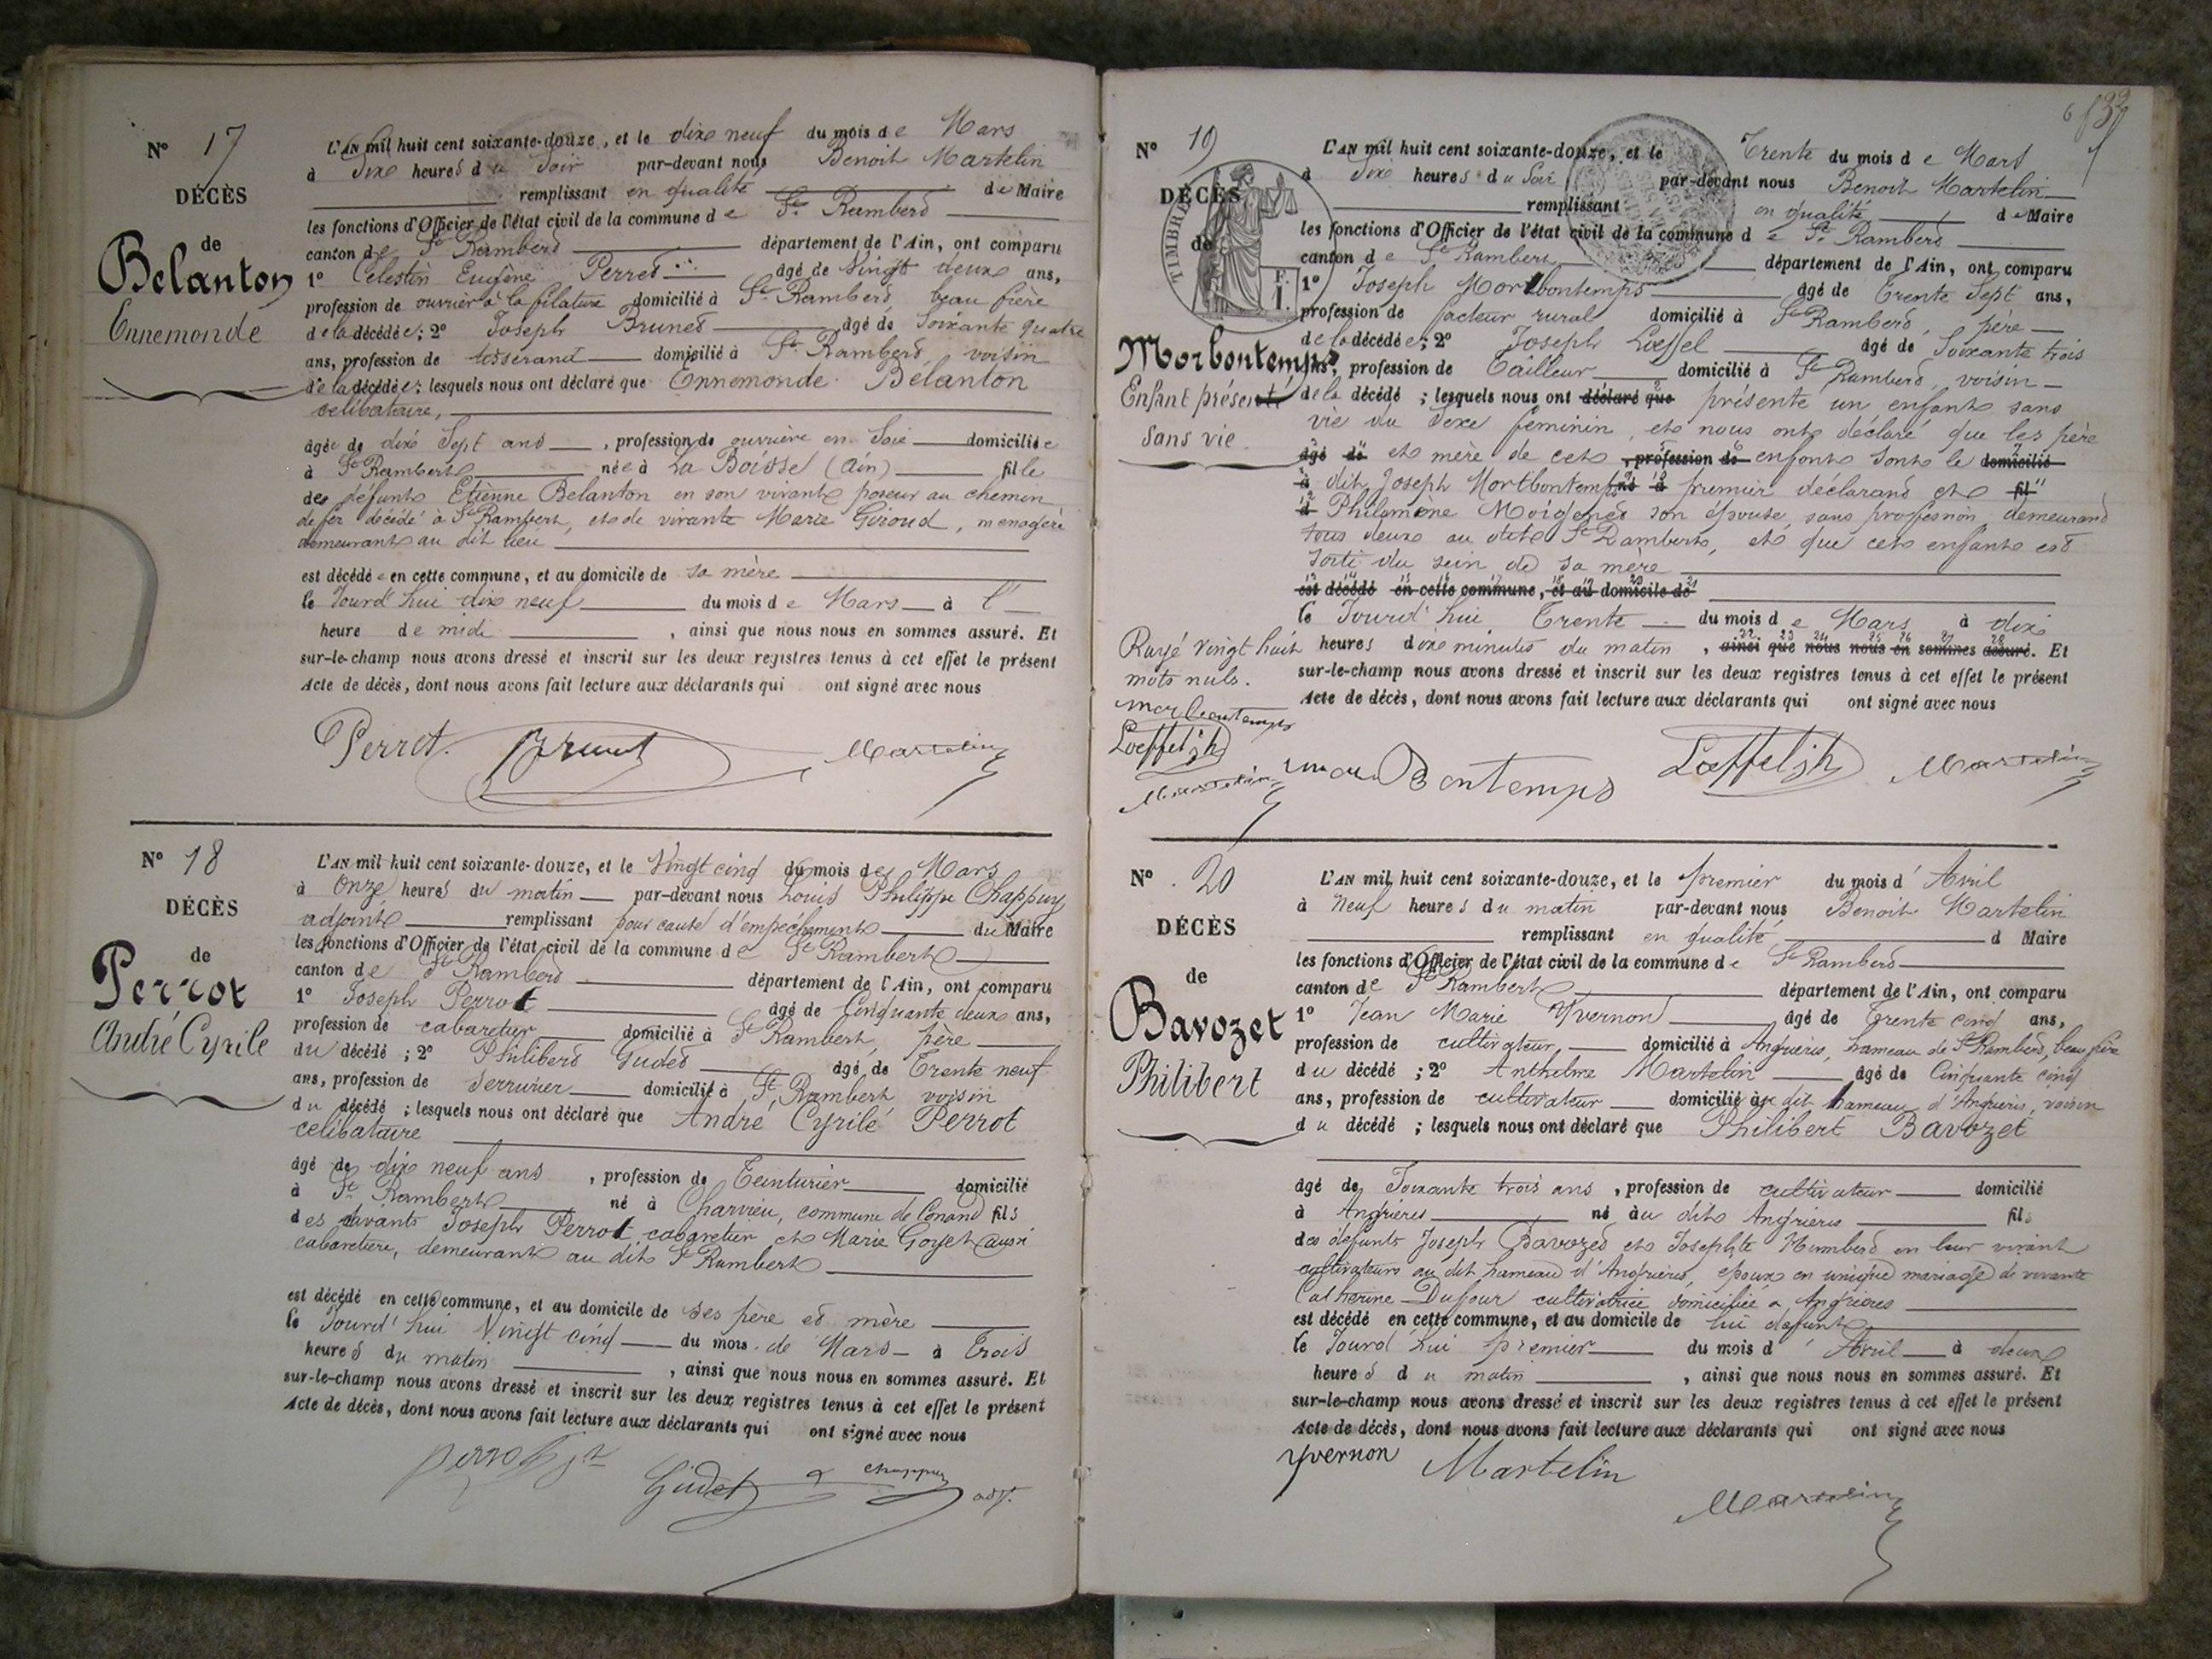 N° 17
DÉCÈS
de
Belanton
Ennemonde
L'AN mil huit cent soixante-douze, et le dixe neuf du mois de Mars
à Sixe heures du Soir par-devant nous Benoit Martelin
remplissant en qualité de Maire
les fonctions d'Officier de l'état civil de la commune de St. Rambert
canton de St Rambert département de l'Ain, ont comparu
1° Celestin Eugène Perret âgé de Vingt deux ans,
profession de ouvrier à la filature domicilié à St. Rambert, beau frère
de la décédée; 2° Joseph Brunet âgé de Soixante quatre
ans, profession de tisserand domicilié à St. Rambert, voisin
de la décédée; lesquels nous ont déclaré que Ennemonde Belanton
celibataire,
âgée de dixe Sept ans, profession de ouvrière en Soie domiciliée
à St Rambert née à La Boisse (Ain) fille
des défunts Etienne Belanton en son vivant poseur au chemin
de fer décédé à St Rambert, et de vivante Marie Giroud, menagère
demeurant au dit lieu
est décédée en cette commune, et au domicile de sa mère
le Jourd'hui dix neuf du mois de Mars à l'
heure de midi, ainsi que nous nous en sommes assuré. Et
sur-le-champ nous avons dressé et inscrit sur les deux registres tenus à cet effet le présent
Acte de décès, dont nous avons fait lecture aux déclarants qui ont signé avec nous
Perret. Brunet Martelin
N° 18
DÉCÈS
de
Perrot
André Cyrile
L'AN mil huit cent soixante-douze, et le Vingt cinq du mois de Mars
à Onze heures du matin par-devant nous Louis Philippe Chappuy
adjoint remplissant pour cause d'empêchement du Maire
les fonctions d'Officier de l'état civil de la commune de St Rambert
canton de St Rambert département de l'Ain, ont comparu
1° Joseph Perrot âgé de Cinquante deux ans,
profession de cabaretier domicilié à St Rambert, père
du décédé; 2° Philibert Gudet âgé de Trente neuf
ans, profession de Serrurier domicilié à St. Rambert voisin
du décédé; lesquels nous ont déclaré que André Cyrile Perrot
celibataire
âgé de dix neuf ans, profession de Teinturier domicilié
à St. Rambert né à Charvieu, commune de Conand fils
des vivants Joseph Perrot cabaretier et Marie Goyet aussi
cabaretiere, demeurant au dit St Rambert
est décédé en cette commune, et au domicile de ses père et mère
le Jourd'hui Vingt cinq du mois de Mars à Trois
heures du matin, ainsi que nous nous en sommes assuré. Et
sur-le-champ nous avons dressé et inscrit sur les deux registres tenus à cet effet le présent
Acte de décès, dont nous avons fait lecture aux déclarants qui ont signé avec nous
Perrot Gudet Chappuy adjt.
N° 19
DÉCÈS
de
TIMBRE
F.
1.
Morbontemps
Enfant présenté
Sans vie
L'AN mil huit cent soixante-douze, et le Trente du mois de Mars
à Sixe heures du Soir par-devant nous Benoit Martelin
remplissant en qualité de Maire
les fonctions d'Officier de l'état civil de la commune de St. Rambert
canton de St Rambert département de l'Ain, ont comparu
1° Joseph Mortbontemps âgé de Trente Sept ans,
profession de facteur rural domicilié à St Rambert, père
de la décédée; 2° Joseph Lœffel âgé de Soixante trois
ans, profession de Tâilleur domicilié à St Rambert, voisin
de la décédé; lesquels nous ont déclaré que présenté un enfant sans
vie du Sexe féminin, et nous ont déclaré que les père
âgé de et mère de cet, profession de enfant sont le domicilié
à dit Joseph Mortbontemps né à premier déclarant et fil
d Philomène son épouse, sans profession, demeurant
tous deux au dit St Rambert, et que cet enfant est
sorti du sein de sa mère
est décédé en cette commune, et au domicile de
le Jourd'hui Trente du mois de Mars à dixe
heures dixe minutes du matin, ainsi que nous nous en sommes assuré. Et
sur-le-champ nous avons dressé et inscrit sur les deux registres tenus à cet effet le présent
Acte de décès, dont nous avons fait lecture aux déclarants qui ont signé avec nous
Rayé vingt huit
mots nuls.
Lœffel jh
Martelin
Bontemps Lœffel jh Martelin
N° 20
DÉCÈS
de
Bavozet
Philibert
L'AN mil huit cent soixante-douze, et le premier du mois d'Avril
à Neuf heures du matin par-devant nous Benoit Martelin
remplissant en qualité d Maire
les fonctions d'Officier de l'état civil de la commune de St Rambert
canton de St Rambert département de l'Ain, ont comparu
1° Jean Marie Yvernon âgé de Trente cinq ans,
profession de cultivateur domicilié à Angrières, hameau de St Rambert, beau frère
du décédé; 2° Anthelme Martelin âgé de Cinquante cinq
ans, profession de cultivateur domicilié au dit hameau d'Angrieres, voisin
du décédé; lesquels nous ont déclaré que Philibert Bavozet
âgé de Soixante trois ans, profession de cultivateur domicilié
à Angrières né au dit Angrières fils
des défunts Joseph Bavozet et Josephte Humbert en leur vivant
cultivateurs au dit hameau d'Angrières, epoux en unique mariage de vivante
Catherine Dufour cultivatrice domiciliée à Angrieres
est décédé en cette commune, et au domicile de lui défunt
le Jourd'hui premier du mois d'Avril à deux
heures du matin, ainsi que nous nous en sommes assuré. Et
sur-le-champ nous avons dressé et inscrit sur les deux registres tenus à cet effet le présent
Acte de décès, dont nous avons fait lecture aux déclarants qui ont signé avec nous
Yvernon Martelin
Martelin